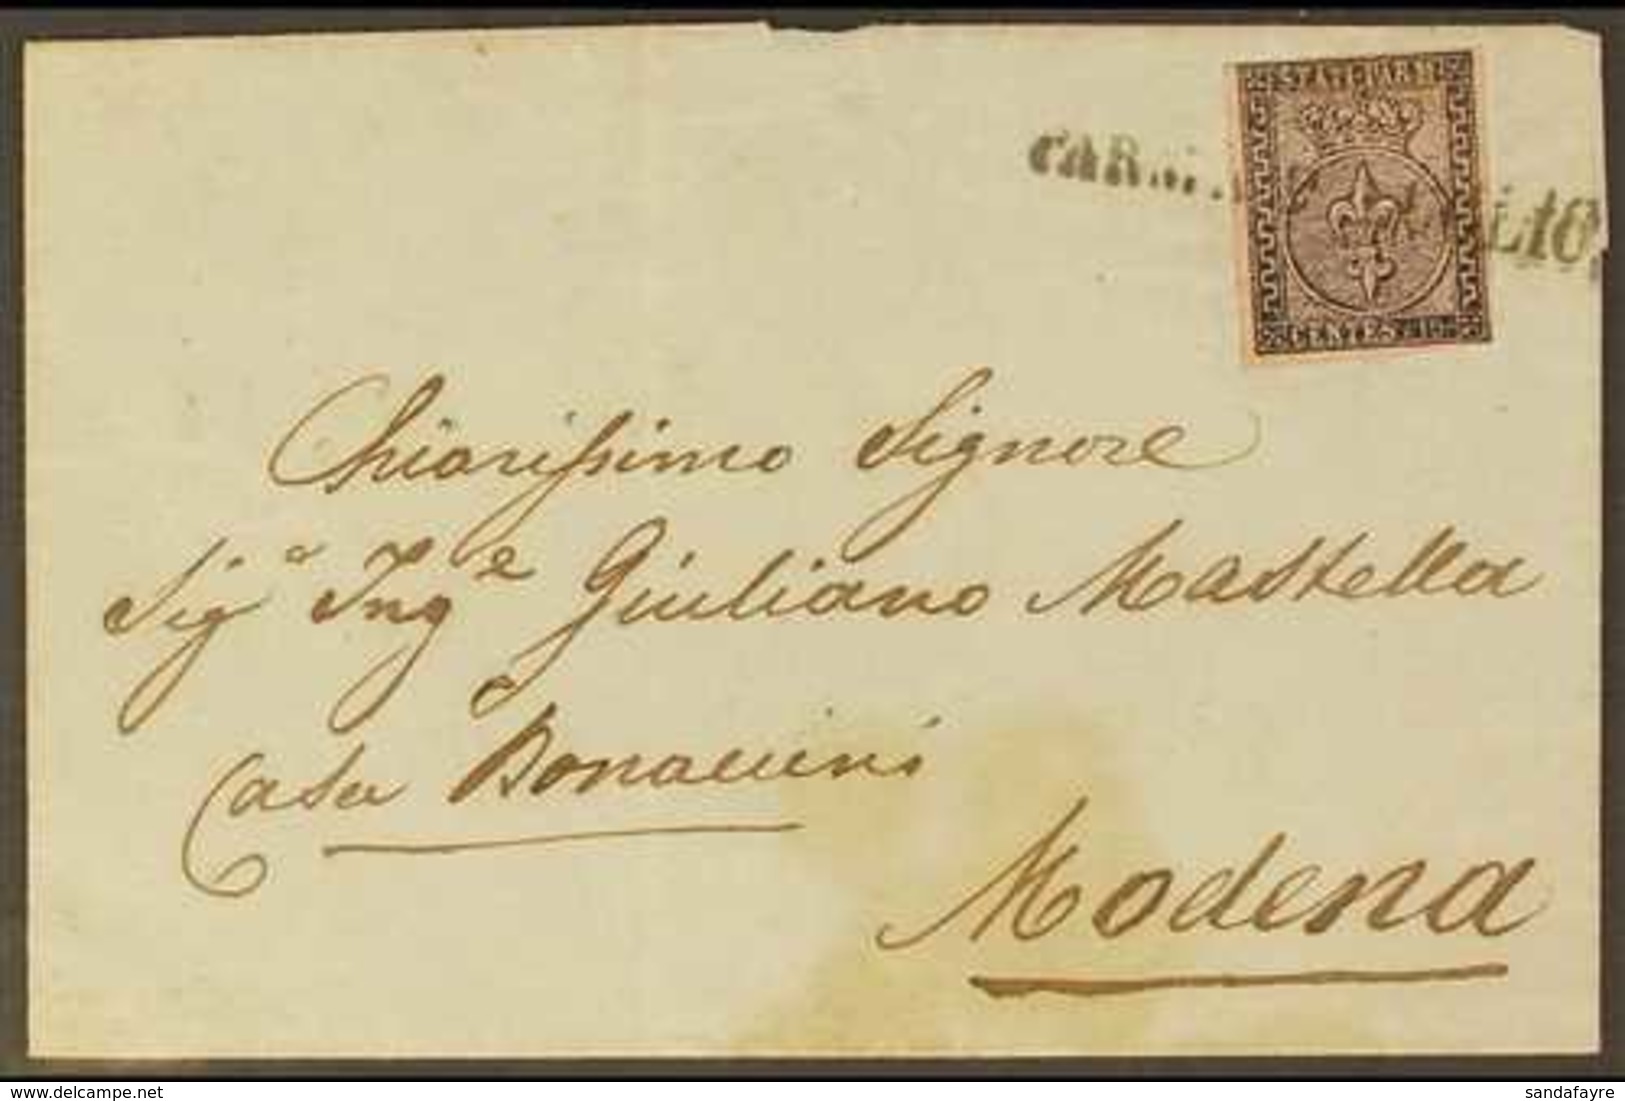 STATI PARM
CENTES. 15
Chiarissimo Signore
Sig.e Ing.e Giuliano Mastella
Casa Bonaccini
Modena
sandafayre